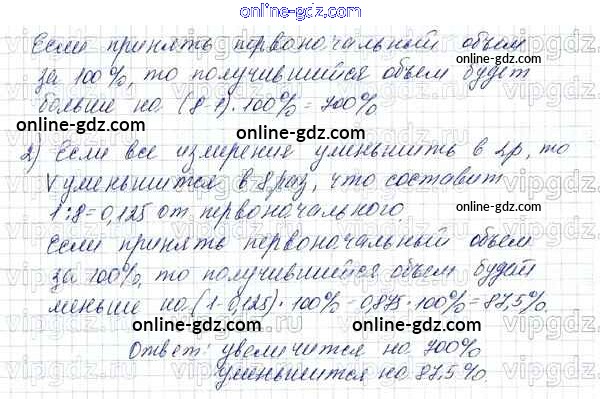 online-gdz.com
Если принять первоначальный объем
за 100%, то получившийся объем будет
больше на (8-1)·100%=700%
online-gdz.com
online-gdz.com
2) Если все измерения уменьшить в 2р, то
V уменьшится в 8 раз, что составит
1:8=0,125 от первоначального.
online-gdz.com
Если принять первоначальный объем
за 100%, то получившийся объем будет
меньше на (1-0,125)·100%=0,875·100%=87,5%.
online-gdz.com
online-gdz.com
Ответ: увеличится на 700%
уменьшится на 87,5%.